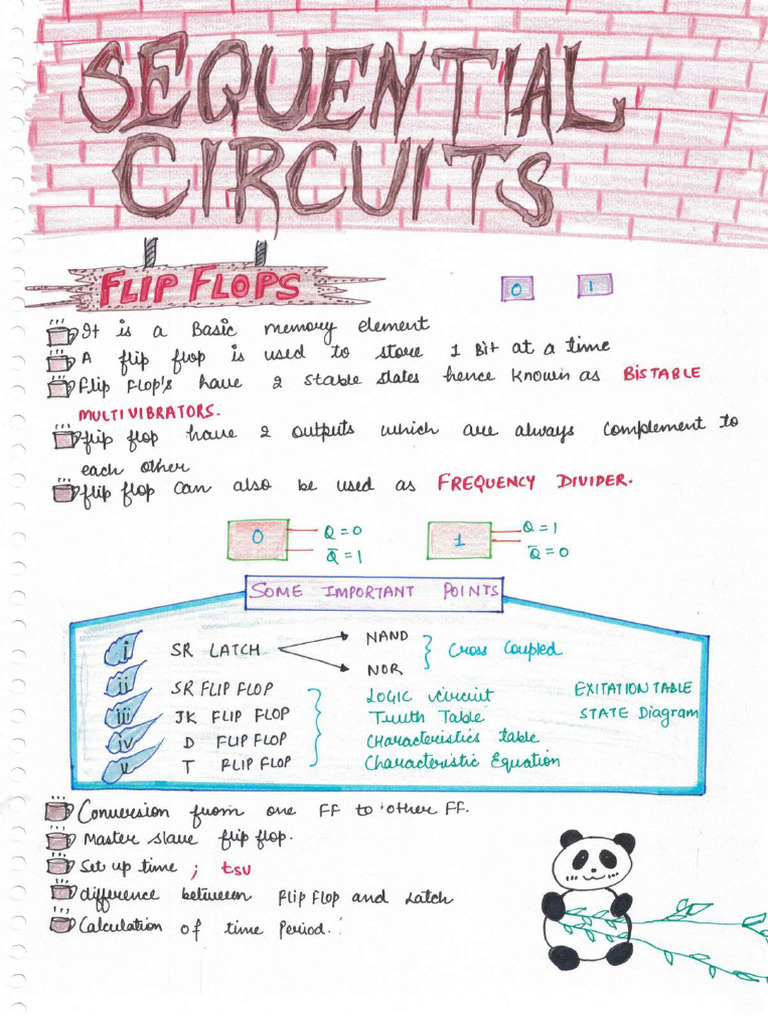 SEQUENTIAL
CIRCUITS
FLIP FLOPS
0 1
It is a Basic memory element
A flip flop is used to store 1 Bit at a time
Flip Flop's have 2 stable states hence known as BISTABLE
MULTIVIBRATORS.
flip flop have 2 outputs which are always complement to
each other
flip flop can also be used as FREQUENCY DIVIDER.
0 Q = 0 1 Q = 1
Q̅ = 1 Q̅ = 0
SOME IMPORTANT POINTS
i SR LATCH NAND } Cross Coupled
NOR
ii SR FLIP FLOP LOGIC circuit EXITATION TABLE
iii JK FLIP FLOP Truth Table STATE Diagram
iv D FLIP FLOP CHaracteristics table
v T FLIP FLOP Characteristic Equation
Conversion from one FF to other FF.
Master slave flip flop.
Set up time ; tsu
difference between flip flop and Latch
Calculation of time Period.